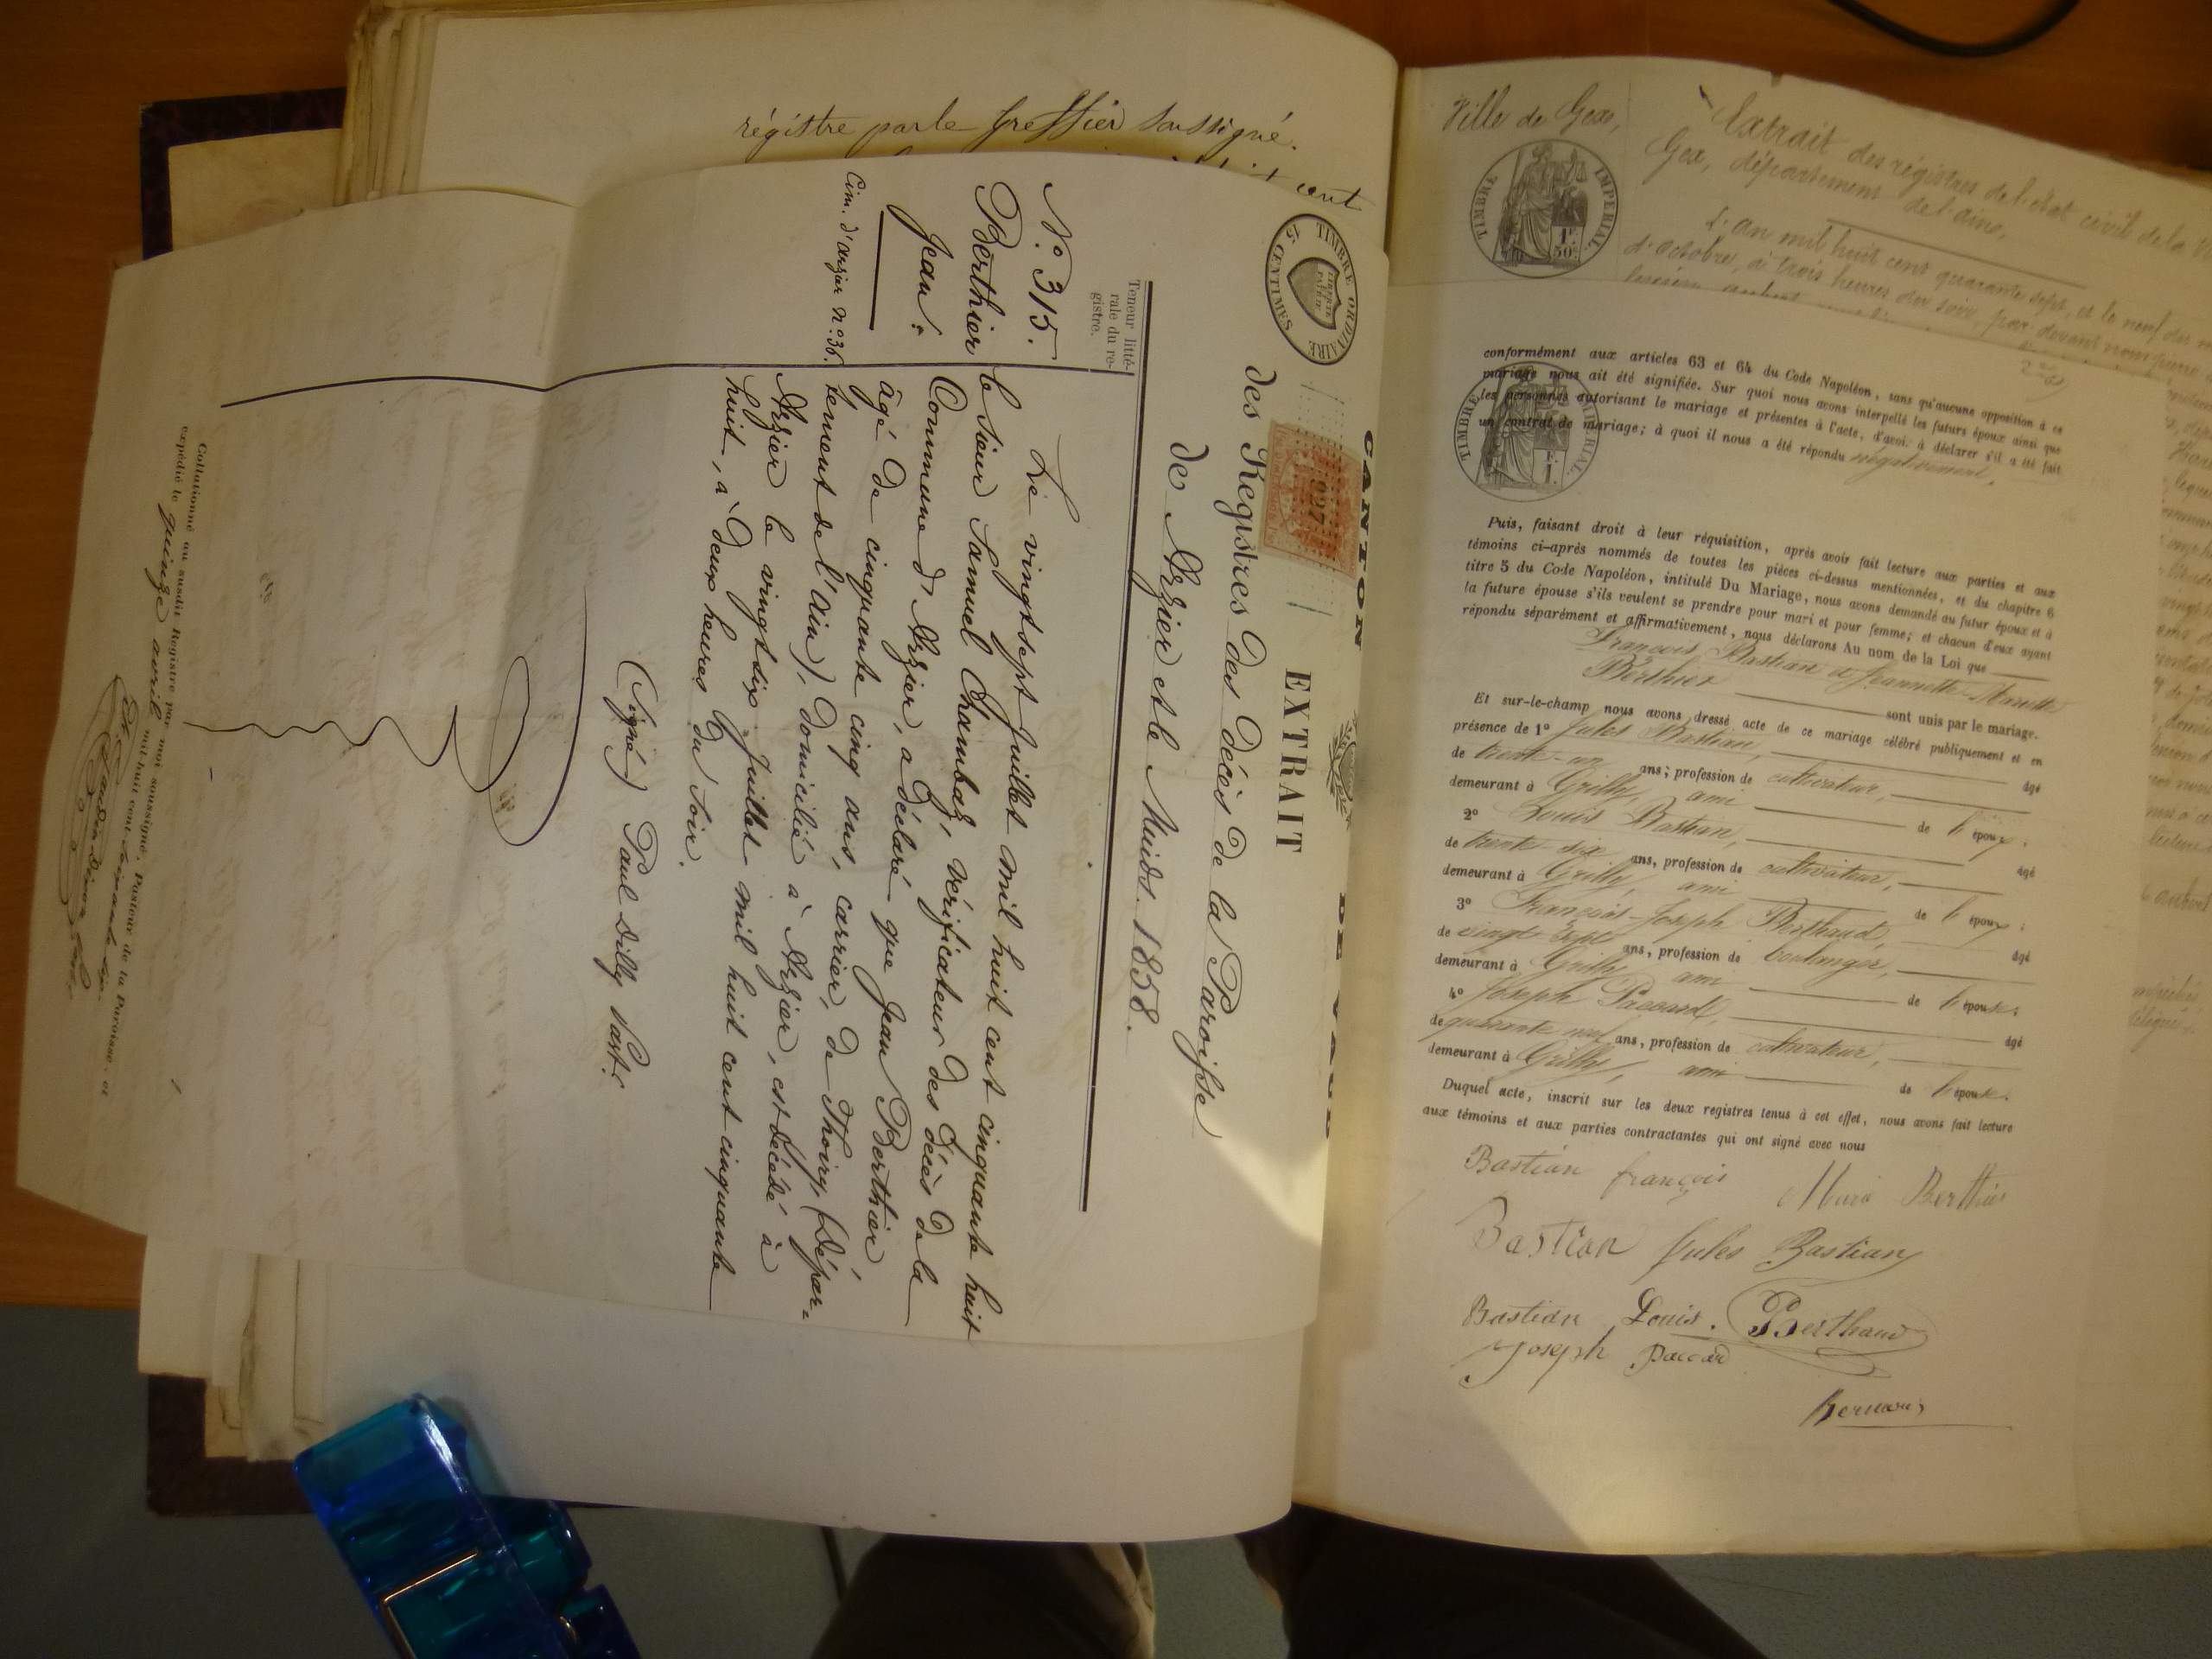 régistre par le greffier soussigné.
cent
CANTON DE VAUD
TIMBRE ORDINAIRE
15 CENTIMES
927
EXTRAIT
des Registres des décès de la Paroisse
de Arzier et le Muids. 1858.
Teneur litté-
rale du re-
gistre.
N.º 315.
Berthier
Jean.
Cim. d'arzier n.º 36.
Le vingt sept Juillet mil huit cent cinquante huit
le sieur Samuel Chambaz, vérificateur des décès de la
Commune d'Arzier, a déclaré que Jean Berthier
âgé de cinquante cinq ans, carrier, de Thoiry, (Dépar-
tement de l'Ain), domicilié à Arzier, est décédé à
Arzier le vingt six Juillet mil huit cent cinquante
huit, à deux heures du soir.
(Signé) Paul Dilly Past.
Collationné au susdit Registre par moi soussigné, Pasteur de la Paroisse, et
expédié le quinze avril mil-huit cent-
Ville de Gex,
TIMBRE IMPERIAL.
1F 50C
Extrait des régistres de l'état civil de la
Gex, département de l'ain,
L'an mil huit cent quarante sept, et le neuf du
d'octobre, à trois heures du soir, par devant nous
conformément aux articles 63 et 64 du Code Napoléon, sans qu'aucune opposition à ce
mariage nous ait été signifiée. Sur quoi nous avons interpellé les futurs époux ainsi que
les personnes autorisant le mariage et présentes à l'acte, d'avoir à déclarer s'il a été fait
un contrat de mariage; à quoi il nous a été répondu négativement.
TIMBRE IMPERIAL.
Puis, faisant droit à leur réquisition, après avoir fait lecture aux parties et aux
témoins ci-après nommés de toutes les pièces ci-dessus mentionnées, et du chapitre 6
titre 5 du Code Napoléon, intitulé Du Mariage, nous avons demandé au futur époux et à
la future épouse s'ils veulent se prendre pour mari et pour femme; et chacun d'eux ayant
répondu séparément et affirmativement, nous déclarons Au nom de la Loi que
François Bastian et Jeannette-Mariette
Berthier sont unis par le mariage.
Et sur-le-champ nous avons dressé acte de ce mariage célébré publiquement et en
présence de 1º Jules Bastian, âgé
de trente-un ans; profession de cultivateur,
demeurant à Grilly, ami de l'époux;
2º Louis Bastian, âgé
de trente six ans, profession de cultivateur,
demeurant à Grilly, ami de l'époux;
3º François-Joseph Berthaud, âgé
de vingt sept ans, profession de boulanger,
demeurant à Grilly, ami de l'épouse;
4º Joseph Paccard, âgé
de quarante neuf ans, profession de cultivateur,
demeurant à Grilly, ami de l'épouse.
Duquel acte, inscrit sur les deux registres tenus à cet effet, nous avons fait lecture
aux témoins et aux parties contractantes qui ont signé avec nous
Bastian françois Berthier
Bastian Jules Bastian
Bastian Louis. Berthaud
Joseph Paccard